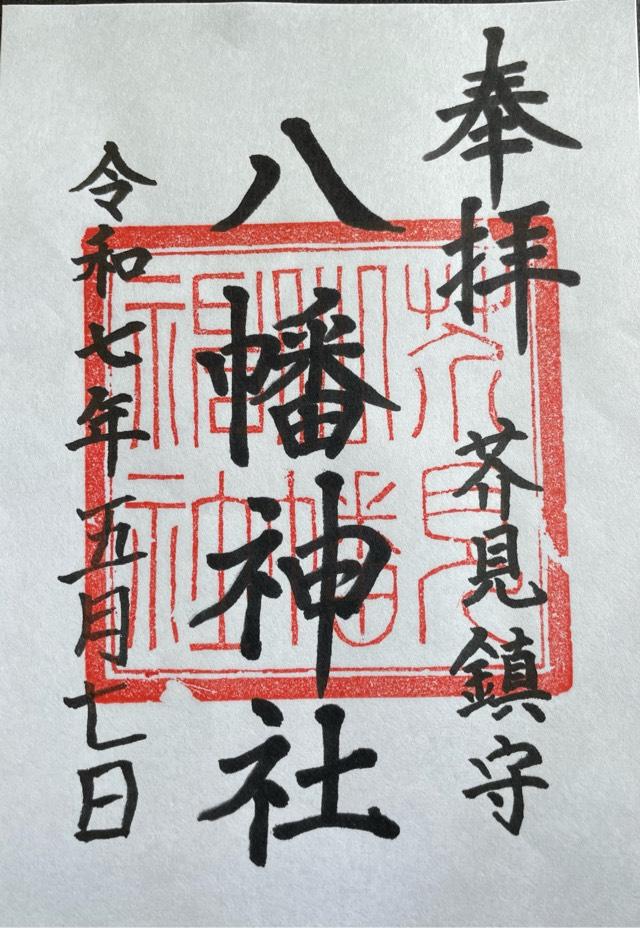 奉拝
芥見鎮守
八幡神社
令和七年五月七日
芥見
八幡
神社